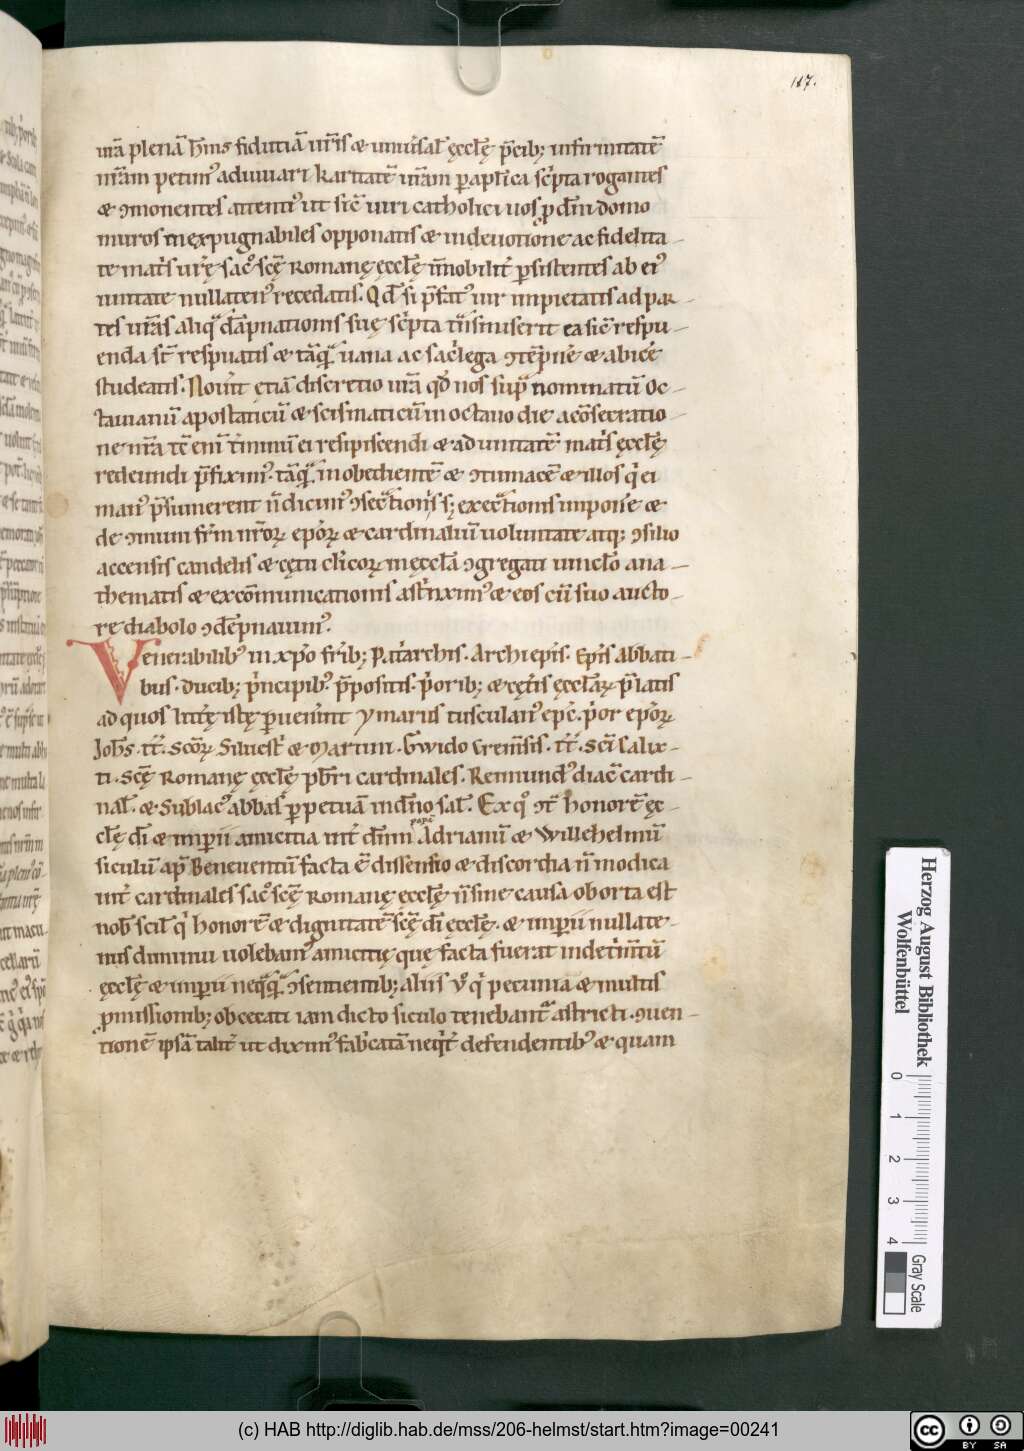 117.
ur̄a plenā h̄ms fiduciā ur̄is & uniu̓sal̓ ęccl̄ę p̄cib; infirmitatē
nr̄am petim᷒ adiuuari karitatē ur̄am p̱ ap̄lica sc̓pta rogantes
& ꝯmonentes attenti᷒ ut sic̄ uiri catholici uos ꝓ dn̄i domo
muros inexpugnabiles opponatis & in deuotione ac fidelita-
te mat̓s ur̄ę sac᷒ scę̄ Romanę ęccl̄ę īmobilit̓ p̱sistentes ab ei᷒
unitate nullaten᷒ recedatis. Qd̄ si p̄fat᷒ uir impietatis ad par-
tes ur̄as aliq̓ dāpnationis suę sc̓pta t̓nsmiserit ea sic̄ respu-
enda st̄ respuatis & tāq̓ uana ac sac̓lega ꝯtēpne̓ & abice̓
studeatis. Nouit̓ etiā discretio ur̄a qd̓ nos sup̓ nominatū Oc-
tauianū apostaticū & scismaticū in octauo die a cōsecratio-
ne nr̄a tc̄ eni᷒ t̓minū ei resipiscendi & ad unitatē mat̓s ęccl̄ę
redeundi p̄fixim᷒. tāq̓ inobedientē & ꝯtumacē & illos q̓ ei
man᷒ p̄sumerent n̄ dicim᷒ ꝯsec̓tionis s; exec̓tionis impone̓ &
de ꝯmuni fr̄m nr̄oꝝ epōꝝ & cardinaliū uoluntate atq; ꝯsilio
accensis candelis & cętu cl̓icoꝝ in ęccl̄a ꝯgregati uinclo̓ ana-
thematis & excōmunicationis ast̓nxim᷒ & eos cū suo aucto-
re diabolo ꝯdēpnauim᷒.
Venerabilib᷒ in xp̄o fr̄ib; Pat̓archis. Archiep̄is. Ep̄is abbati-
bus. Ducib; p̓ncipib᷒ p̄positis. p̓orib; & cęt̓is ęccl̄aꝝ p̄latis
ad quos litt̓ę istę p̱uenint̓ ymarus tusculan᷒ epc̄. p̓or epōꝝ
Joh̄s. tt̄. scōꝝ Siluest̓ & Martini. Gwido Crem̄sis. tt̄. sc̄i Calix-
ti. scę̄ Romanę ęccl̄ę pb̄ri cardinales. Reimund᷒ diac̄ cardi-
nal̓. & Sublac᷒ abbas p̱petuā in dn̄o sal̓. Ex q᷒ ꝯt̓ honorē ęc-
cl̄ę dī & imp̱ii amicicia int̓ dn̄m papā Adrianū & Willehelmū
siculū ap᷒ Beneuentū facta ē dissensio & discordia n̄ modica
int̓ cardinales sac᷒ scę̄ Romanę ęccl̄ę n̄ sine causa oborta est
nob̓ scil̓ q̓ honorē & dignitatē scę̄ dī ęccl̄ę. & imp̱ii nullate-
nus diminui uolebam᷒ amicitię quę facta fuerat in det̓mtū
ęccl̄ę & imp̱ii neq̓q̓ ꝯsentientib; aliis ū q̓ pecunia & multis
ꝓmissionib; obcecati iam dicto siculo tenebant᷒ astricti. ꝯuen-
tionē ipsā talit̓ ut dixim᷒ fab̓catā neq̓t̓ defendentib᷒ & quam
Herzog August Bibliothek
Wolfenbüttel
0 1 2 3 4
Gray Scale
(c) HAB http://diglib.hab.de/mss/206-helmst/start.htm?image=00241
cc BY SA